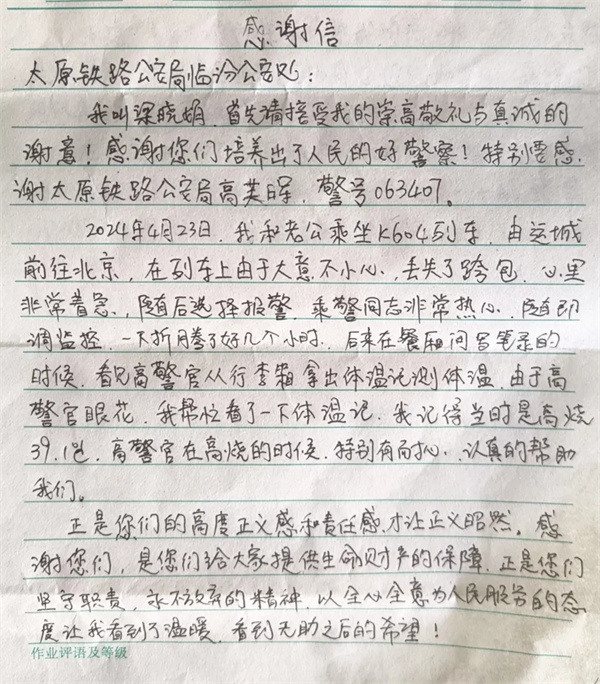 感谢信
太原铁路公安局临汾公安处：
我叫梁晓娟，首先请接受我的崇高敬礼与真诚的
谢意！感谢您们培养出了人民的好警察！特别要感
谢太原铁路公安局高英晖，警号063407。
2024年4月23日，我和老公乘坐K604列车，由运城
前往北京，在列车上由于大意不小心，丢失了跨包，心里
非常着急，随后选择报警，乘警同志非常热心，随即
调监控，一下折腾了好几个小时，后来在餐厢问写笔录的
时候，看见高警官从行李箱拿出体温记测体温，由于高
警官眼花，我帮忙看了一下体温记，我记得当时是高烧
39.1度，高警官在高烧的时候，特别有耐心，认真的帮助
我们。
正是您们的高度正义感和责任感，才让正义昭然，感
谢您们，是您们给大家提供生命财产的保障，正是您们
坚守职责，永不放弃的精神，以全心全意为人民服务的态
度让我看到了温暖，看到无助之后的希望！
作业评语及等级